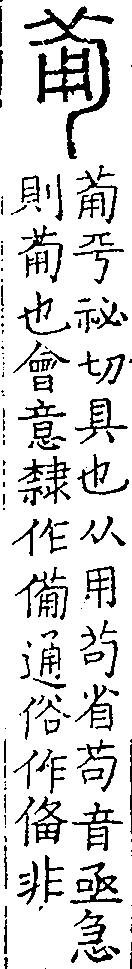 𤰇
𤰇平祕切具也从用茍省茍音亟急
則𤰇也會意隸作備通俗作俻非